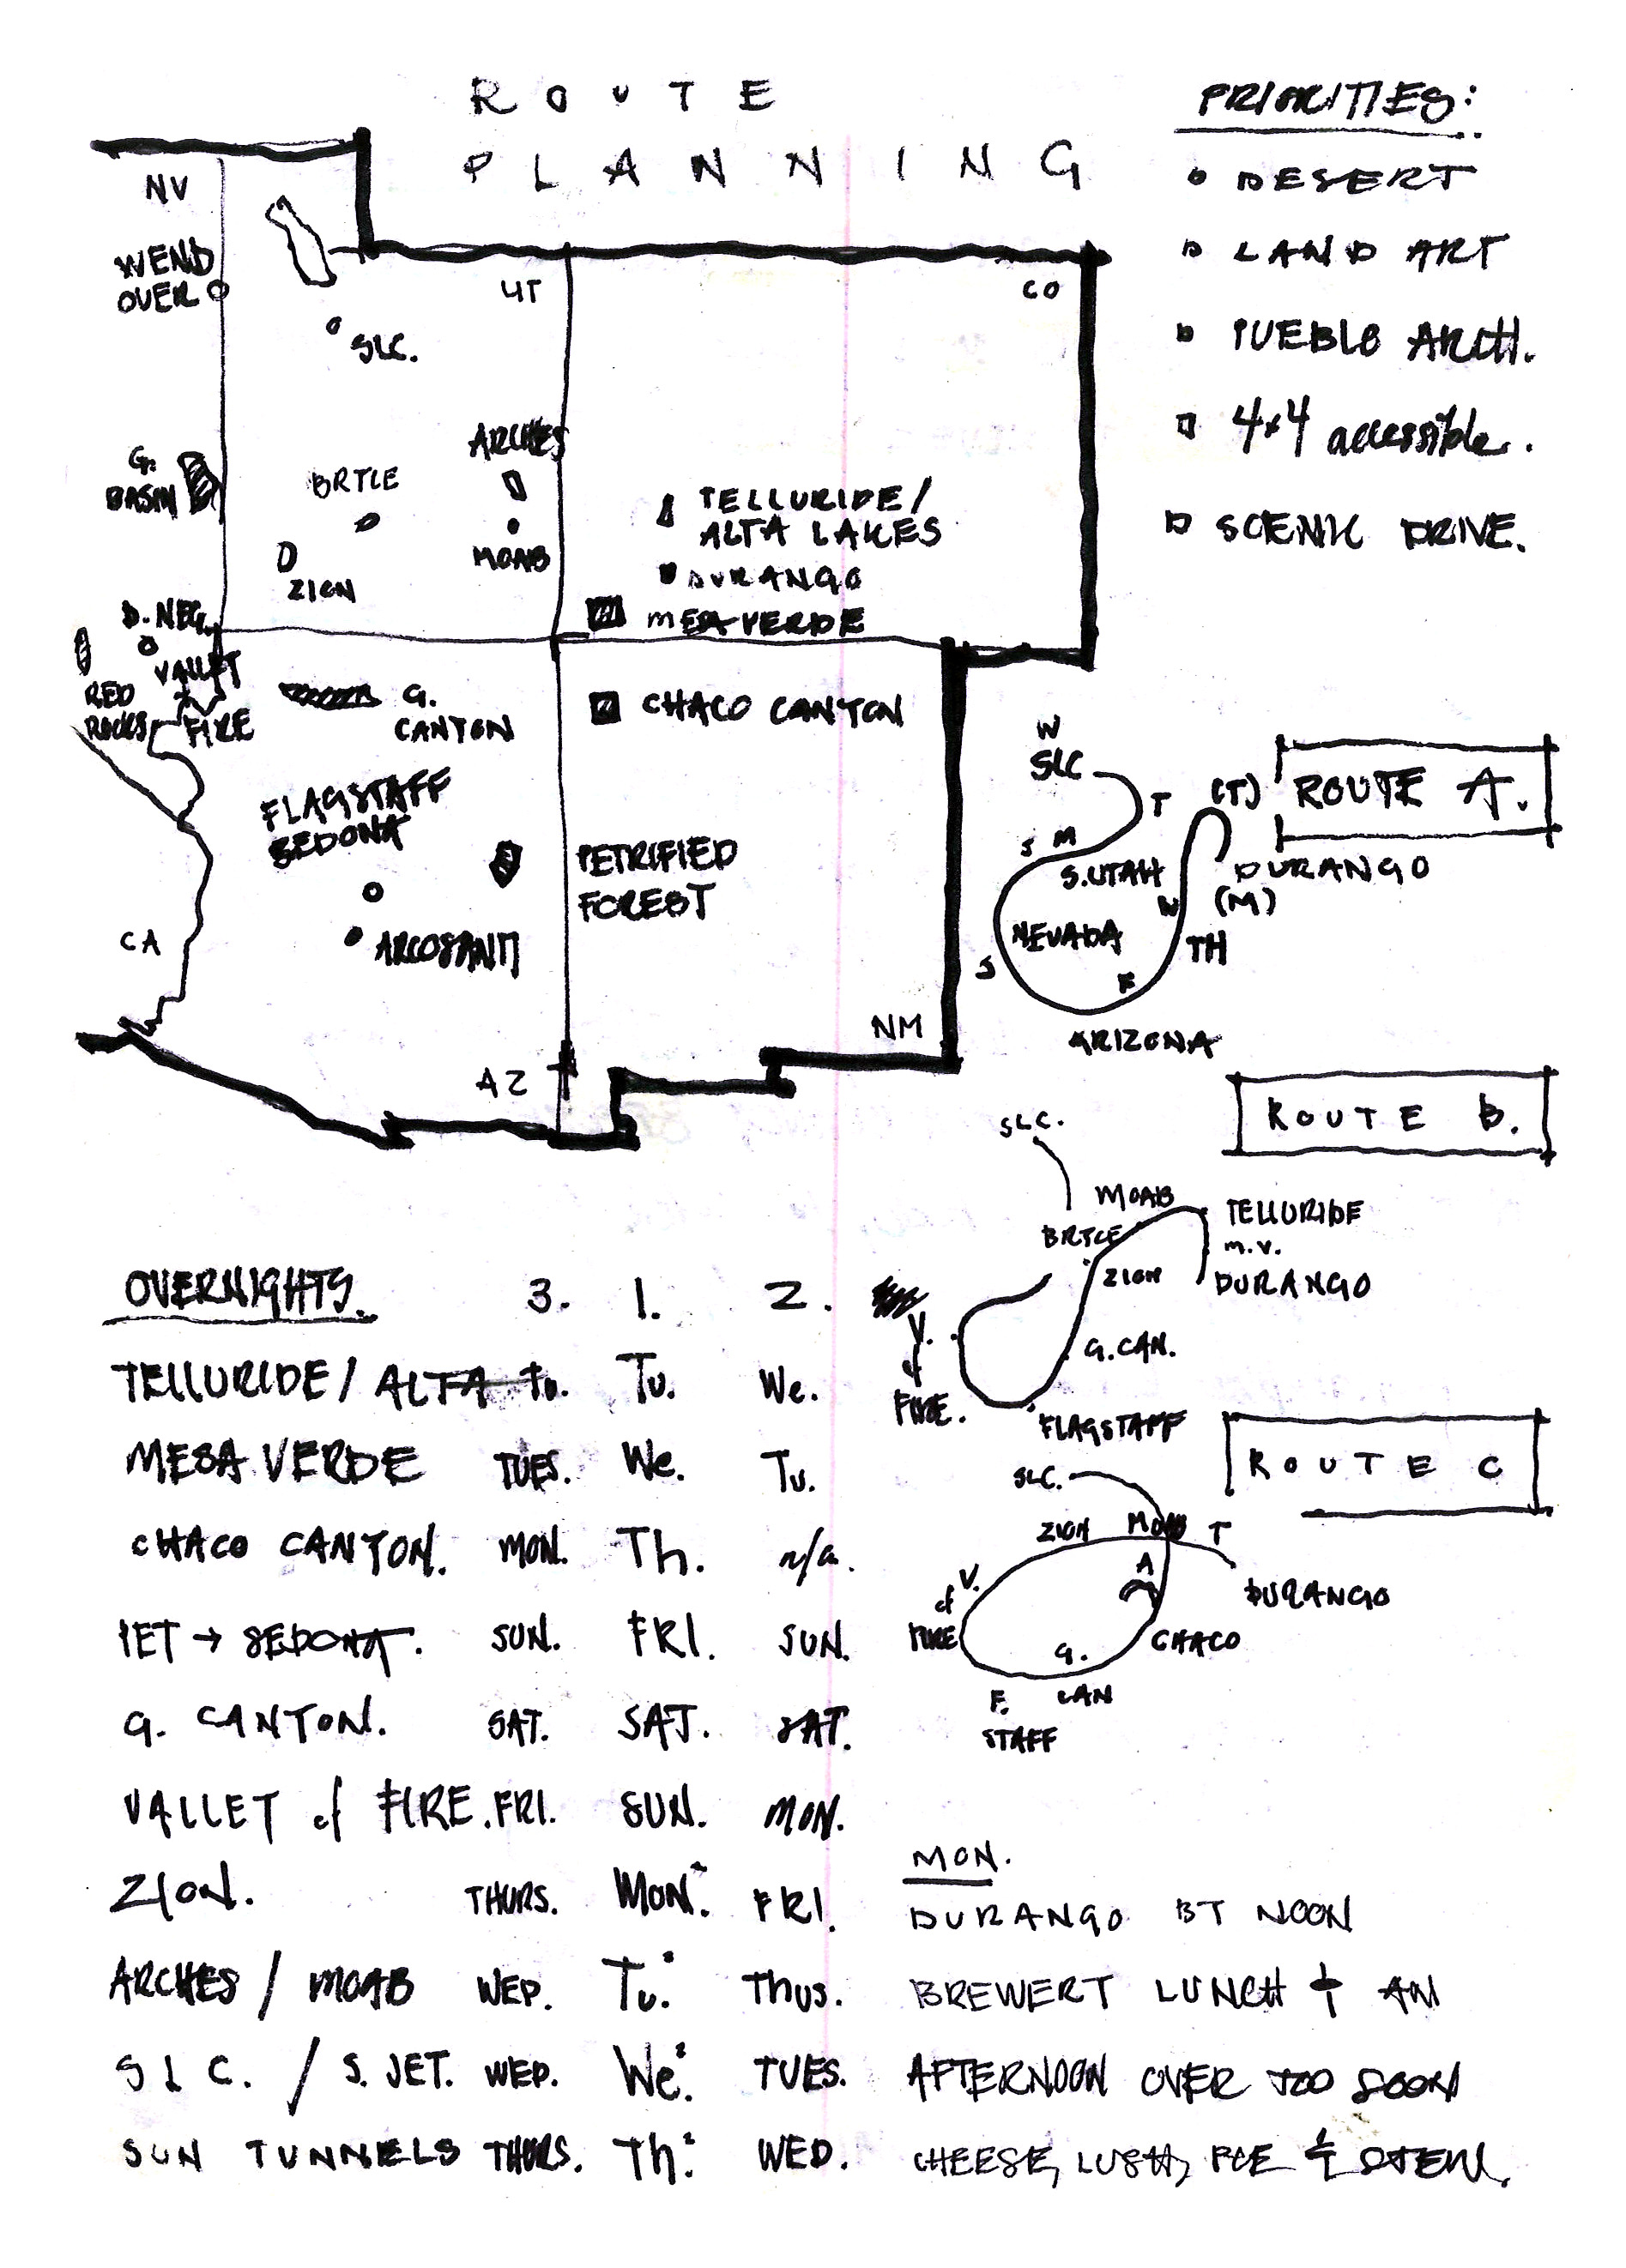 ROUTE
PLANNING
PRIORITIES:
DESERT
LAND ART
PUEBLO ARCH.
4x4 accessible.
SCENIC DRIVE.
NV
WEND
OVER
UT
CO
SLC.
G.
BASIN
BRYCE
ARCHES
MOAB
ZION
TELLURIDE/
ALTA LAKES
DURANGO
MESA VERDE
D. NEG.
VALLEY
FIRE
RED
ROCKS
G.
CANYON
CHACO CANYON
FLAGSTAFF
SEDONA
PETRIFIED
FOREST
ARCOSANTI
CA
AZ
NM
ROUTE A.
W
SLC
T
(T)
S M
S.UTAH
DURANGO
(M)
W
NEVADA
TH
S
F
ARIZONA
ROUTE B.
SLC.
MOAB
TELLURIDE
BRYCE
M.V.
ZION
DURANGO
V.
of
FIRE.
G.CAN.
FLAGSTAFF
ROUTE C
SLC.
ZION MOAB T
A
V.
of
FIRE
DURANGO
CHACO
G.
CAN
F.
STAFF
OVERNIGHTS. 3. 1. 2.
TELLURIDE/ ALTA Tu. Tu. We.
MESA VERDE TUES. We. Tu.
CHACO CANYON. MON. Th. n/a.
PET → SEDONA. SUN. FRI. SUN.
G. CANYON. SAT. SAT. SAT.
VALLEY of FIRE. FRI. SUN. MON.
ZION. THURS. MON. FRI.
ARCHES / MOAB WED. Tu. Thus.
SLC. / S. JET. WED. We. TUES.
SUN TUNNELS THURS. Th. WED.
MON.
DURANGO BY NOON
BREWERY LUNCH & AN
AFTERNOON OVER TOO SOON
CHEESE, LUSH, & STEW.